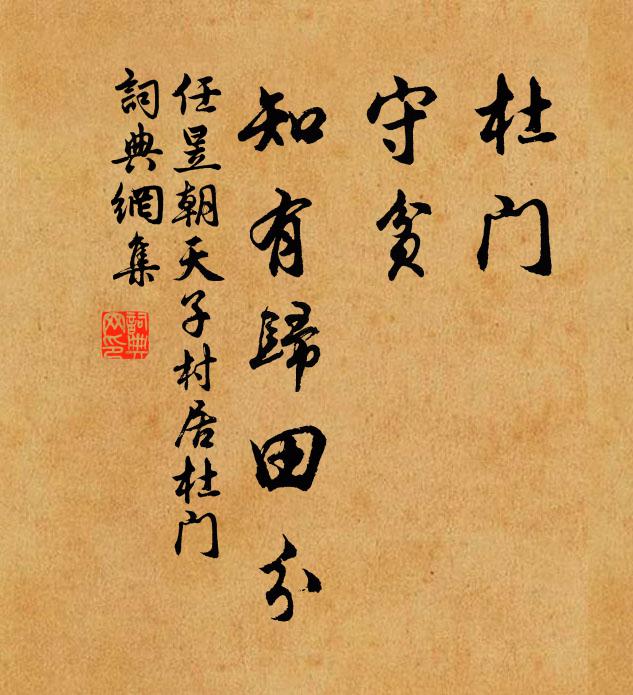 杜门
守贫
知有歸田分
任昱朝天子村居杜门
詞典網集
詞典网印